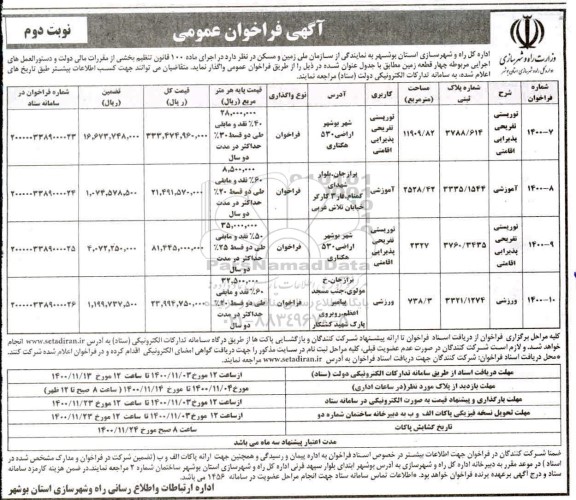 آگهی فراخوان عمومی
نوبت دوم
وزارت راه و شهرسازی
اداره کل راه و شهرسازی استان بوشهر به نمایندگی از سازمان ملی زمین و مسکن در نظر دارد در اجرای ماده ۱۰۰ قانون تنظیم بخشی از مقررات مالی دولت و دستورالعمل های
اجرایی مربوطه چهار قطعه زمین مطابق با جدول عنوان شده در ذیل را از طریق فراخوان عمومی واگذار نماید. متقاضیان می توانند جهت کسب اطلاعات بیشتر طبق تاریخ های
اعلام شده، به سامانه تدارکات الکترونیکی دولت (ستاد) مراجعه نمایند.
شماره فراخوان | شرح | شماره پلاک ثبتی | مساحت (مترمربع) | کاربری | آدرس | نوع واگذاری | قیمت پایه هر متر مربع (ریال) | قیمت کل (ریال) | تضمین (ریال) | شماره فراخوان در سامانه ستاد
۱۴۰۰-۷ | توریستی تفریحی پذیرایی اقامتی | ۳۷۸۸/۶۱۴ | ۱۱۹۰۹/۸۲ | توریستی تفریحی پذیرایی اقامتی | شهر بوشهر اراضی ۵۳۰ هکتاری | فراخوان | ۲۸,۰۰۰,۰۰۰ ۴۰٪ نقد و مابقی طی دو قسط ۳۰٪ حداکثر در مدت دو سال | ۳۳۳,۴۷۴,۹۶۰,۰۰۰ | ۱۶,۶۷۳,۷۴۸,۰۰۰ | ۲۰۰۰۰۰۳۳۸۹۰۰۰۰۲۳
۱۴۰۰-۸ | آموزشی | ۳۳۳۵/۱۵۴۴ | ۲۵۲۸/۴۲ | آموزشی | برازجان، بلوار شهدای گمنام، فاز۳ کارگر خیابان تلاش غربی | فراخوان | ۸,۵۰۰,۰۰۰ ۶۰٪ نقد و مابقی طی دو قسط ۲۰٪ حداکثر در مدت دو سال | ۲۱,۴۹۱,۵۷۰,۰۰۰ | ۱,۰۷۴,۵۷۸,۵۰۰ | ۲۰۰۰۰۰۳۳۸۹۰۰۰۰۲۴
۱۴۰۰-۹ | توریستی تفریحی پذیرایی اقامتی | ۳۷۶۰/۳۴۳۵ | ۲۳۲۷ | توریستی تفریحی پذیرایی اقامتی | شهر بوشهر اراضی ۵۳۰ هکتاری | فراخوان | ۳۵,۰۰۰,۰۰۰ ۵۰٪ نقد و مابقی طی دو قسط ۲۵٪ حداکثر در مدت دو سال | ۸۱,۴۴۵,۰۰۰,۰۰۰ | ۴,۰۷۲,۲۵۰,۰۰۰ | ۲۰۰۰۰۰۳۳۸۹۰۰۰۰۲۵
۱۴۰۰-۱۰ | ورزشی | ۳۳۲۱/۱۲۷۴ | ۷۳۸/۳ | ورزشی | برازجان، خ مولوی، جنب مسجد پیامبر اعظم، روبروی پارک شهید کشتکار | فراخوان | ۳۲,۵۰۰,۰۰۰ ۶۰٪ نقد و مابقی طی دو قسط ۲۰٪ حداکثر در مدت دو سال | ۲۳,۹۹۴,۷۵۰,۰۰۰ | ۱,۱۹۹,۷۳۷,۵۰۰ | ۲۰۰۰۰۰۳۳۸۹۰۰۰۰۲۶
کلیه مراحل برگزاری فراخوان از دریافت اسناد فراخوان تا ارائه پیشنهاد شرکت کنندگان و بازگشایی پاکت ها از طریق درگاه سامانه تدارکات الکترونیکی (ستاد) به آدرس www.setadiran.ir انجام
خواهد شد. و لازم است شرکت کنندگان در صورت عدم عضویت قبلی، کلیه مراحل ثبت نام در سایت مذکور را جهت دریافت گواهی امضای الکترونیکی اقدام کرده و در فراخوان اعلام شده شرکت کنند.
محل دریافت اسناد فراخوان: شرکت کنندگان جهت دریافت اسناد فراخوان به آدرس www.setadiran.ir مراجعه نمایند.
مهلت دریافت اسناد از طریق سامانه تدارکات الکترونیکی دولت (ستاد) | از ساعت ۱۲ مورخ ۱۴۰۰/۱۱/۰۳ تا ساعت ۱۲ مورخ ۱۴۰۰/۱۱/۱۳
مهلت بازدید از پلاک مورد نظر (در ساعات اداری) | مورخ ۱۴۰۰/۱۱/۰۴ تا مورخ ۱۴۰۰/۱۱/۱۴ (ساعت ۸ صبح تا ۱۲ ظهر)
مهلت بارگذاری و پیشنهاد قیمت به صورت الکترونیکی در سامانه ستاد | از ساعت ۱۲ مورخ ۱۴۰۰/۱۱/۰۳ تا ساعت ۱۲ مورخ ۱۴۰۰/۱۱/۲۳
مهلت تحویل نسخه فیزیکی پاکات الف و ب به دبیرخانه ساختمان شماره دو | از ساعت ۱۲ مورخ ۱۴۰۰/۱۱/۰۳ تا ساعت ۱۲ مورخ ۱۴۰۰/۱۱/۲۳
تاریخ گشایش پاکات | ساعت ۸ صبح مورخ ۱۴۰۰/۱۱/۲۴
مدت اعتبار پیشنهاد سه ماه می باشد
ضمنا شرکت کنندگان در فراخوان جهت اطلاعات بیشتر در خصوص اسناد فراخوان به اداره پیمان و رسیدگی و همچنین جهت ارائه پاکات الف و ب (تضمین شرکت در فراخوان و مدارک مشخص شده در
اسناد) در موعد مقرر به دبیرخانه اداره کل راه و شهرسازی به آدرس بوشهر ابتدای بلوار سپهبد قرنی اداره کل راه و شهرسازی استان بوشهر ساختمان شماره ۲ مراجعه نمایند. در ضمن هزینه کارمزد سامانه
ستاد و درج آگهی برعهده برنده فراخوان خواهد بود. اطلاعات تماس سامانه ستاد جهت انجام مراحل عضویت در سامانه ۱۴۵۶ می باشد.
اداره ارتباطات و اطلاع رسانی راه و شهرسازی استان بوشهر